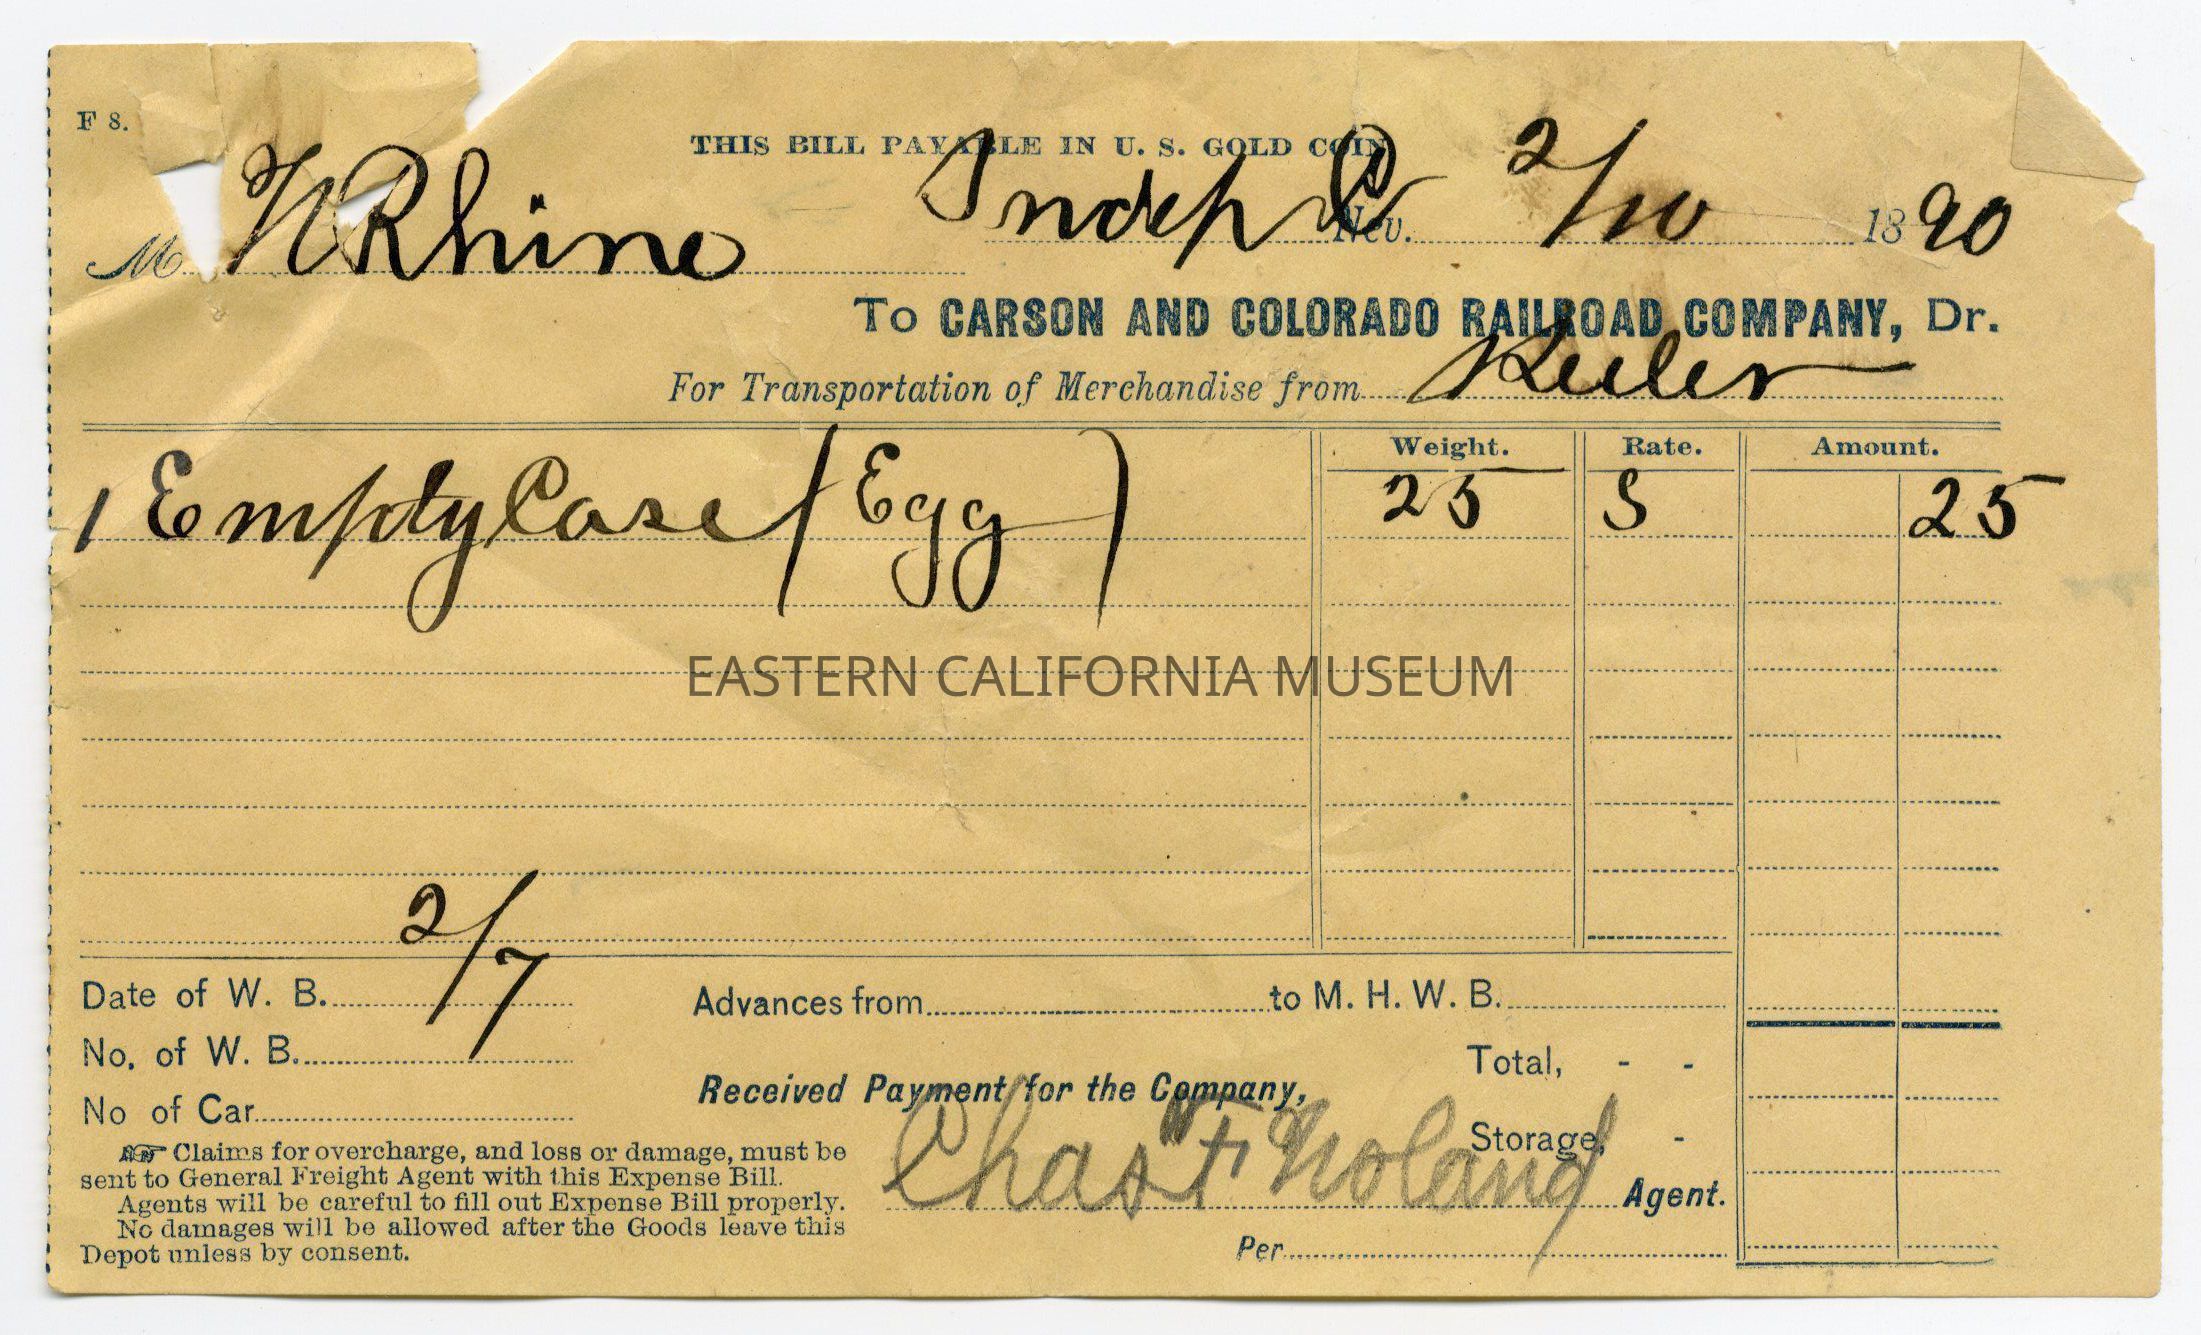 F 8.
THIS BILL PAYABLE IN U. S. GOLD COIN
M N Rhine Indep C Nev. 2/10 1890
To CARSON AND COLORADO RAILROAD COMPANY, Dr.
For Transportation of Merchandise from Keeler
Weight. Rate. Amount.
1 Empty Case (Egg) 25 S 25
EASTERN CALIFORNIA MUSEUM
Date of W. B. 2/7
Advances from to M. H. W. B.
No. of W. B.
Total, - -
Received Payment for the Company,
No of Car
Storage, -
Chas F Noland Agent.
Per
☞ Claims for overcharge, and loss or damage, must be
sent to General Freight Agent with this Expense Bill.
Agents will be careful to fill out Expense Bill properly.
No damages will be allowed after the Goods leave this
Depot unless by consent.